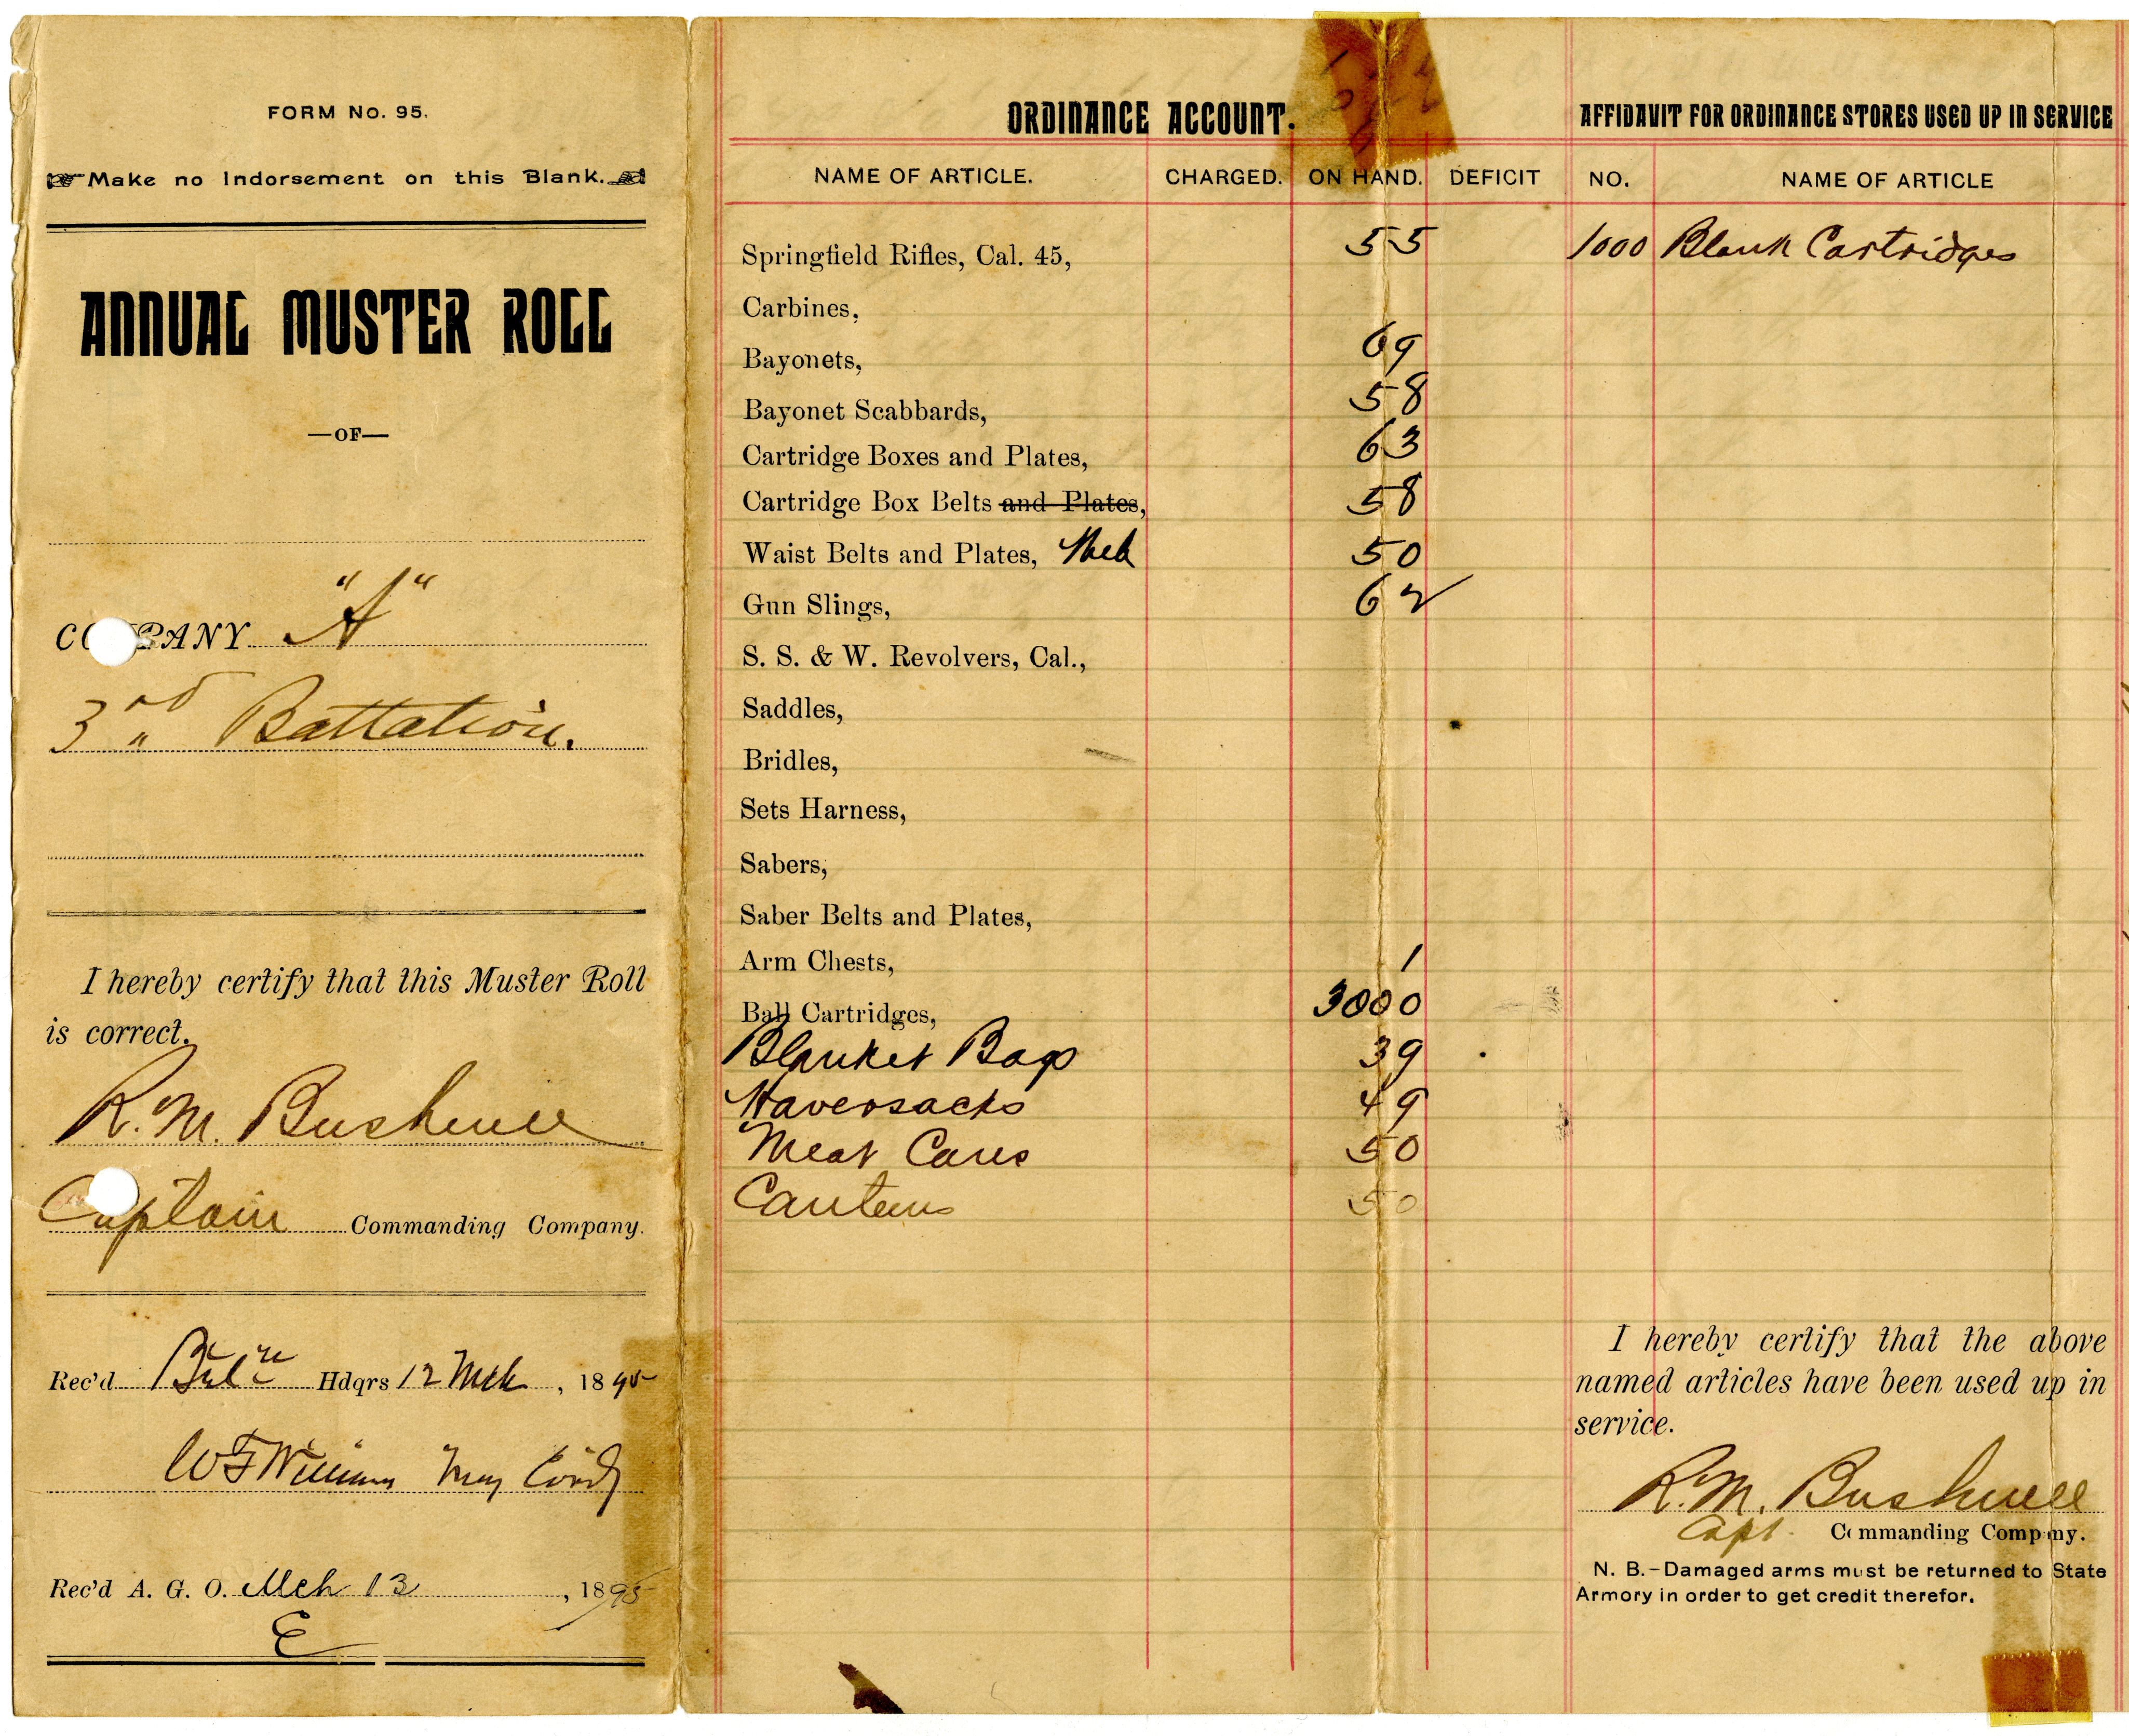 FORM No. 95.
Make no Indorsement on this Blank.
ANNUAL MUSTER ROLL
—OF—
COMPANY "A"
3rd Battation.
I hereby certify that this Muster Roll
is correct.
R. M. Bushnell
Captain Commanding Company.
Rec'd Hdqrs 12 Mch, 1895
W F Williams Maj Comdg
Rec'd A. G. O. Mch 13, 1895
E
ORDINANCE ACCOUNT.
NAME OF ARTICLE. CHARGED. ON HAND. DEFICIT
Springfield Rifles, Cal. 45, 55
Carbines,
Bayonets, 69
Bayonet Scabbards, 58
Cartridge Boxes and Plates, 63
Cartridge Box Belts and Plates, 58
Waist Belts and Plates, 50
Gun Slings, 62
S. S. & W. Revolvers, Cal.,
Saddles,
Bridles,
Sets Harness,
Sabers,
Saber Belts and Plates,
Arm Chests, 1
Ball Cartridges, 3000
Blanket Bags 39
Haversacks 49
Meat Cans 50
Canteens 50
AFFIDAVIT FOR ORDINANCE STORES USED UP IN SERVICE
NO. NAME OF ARTICLE
1000 Blank Cartridges
I hereby certify that the above
named articles have been used up in
service.
R. M. Bushnell
Capt. Commanding Company.
N. B.—Damaged arms must be returned to State
Armory in order to get credit therefor.